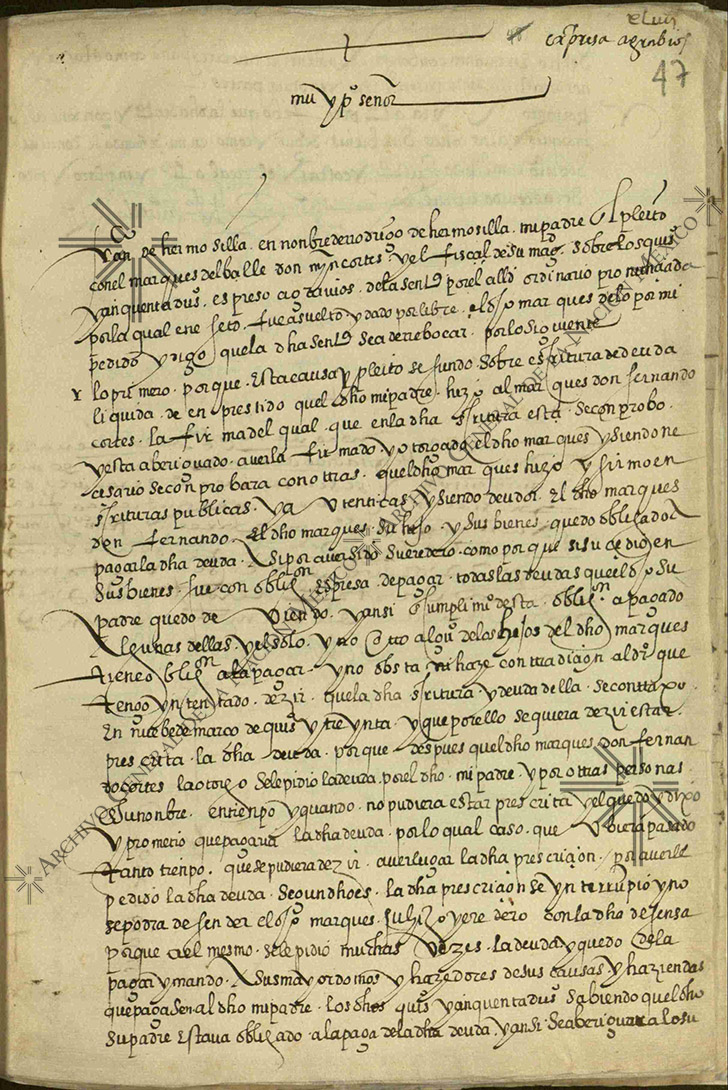 expresa agrabios
47
muy pº señor
Juan de hermosilla en nonbre de rodrigo de hermosilla mi padre En el pleito
con el marques del balle don myn cortes y el fiscal de su magd sobre los quis
y çinquenta dus espreso agrabios de la sena por el allde ordinario pronunçiada
por la qual en efeto fue asuelto y dado por libre el dho marques de lo por mi
pedido y digo que la dha sena se a de rrebocar por lo siguiente
lo primero porque Esta causa y pleito se fundo sobre escritura de deuda
liquida de enprestido quel dho mi padre hizo al marques don fernando
cortes la firma del qual que en la dha escritura esta se conprobo
y esta aberiguado averla firmado y otorgado el dho marques y siendo ne
cesario se conprobara con otras quel dho marques hizo y firmo en
escrituras publicas y avtenticas y siendo deudor El dho marques
don fernando El dho marques su hijo y sus bienes quedo obligado a
pagar la dha deuda Asi por aver sido su eredero como porque si suçedio en
sus bienes fue con obligon espresa de pagar todas las deudas quel dho su
padre quedo deviendo y ansi En cumplimio desta obligon a pagado
Algunas dellas y el solo y no otro algo de los hijos del dho marques
tiene obligon a la pagar y no obsta ni haze contradiçion al dro que
tengo yntentado dezir que la dha escritura y deuda della se contraxo
En nuebe de março de quis y treynta y que por ello se quiera dezir estar
prescrita la dha deuda porque despues quel dho marques don fernan
do cortes la otorgo se le pidio la deuda por el dho mi padre y por otras personas
En su nonbre en tienpo y quando no pudiera estar prescrita y el quedo y dixo
y prometio que pagaria la dha deuda por lo qual caso que vbiera pasado
tanto tienpo que se pudiera dezir aver lugar la dha prescriçion por averle
pedido la dha deuda segund dho es la dha prescriçion se ynterrupio y no
se podra defender el dho marques su hijo y eredero con la dha defensa
porque a el mesmo se le pidio muchas vezes la deuda y quedo de la
pagar y mando A sus mayordomos y hazedores de sus causas y haziendas
que pagasen al dho mi padre los dhos quis y çinquenta dus sabiendo quel dho
su padre estava obligado a la paga de la dha deuda y ansi se aberiguara lo su
ARCHIVO GENERAL DE LA NACIÓN MÉXICO
ARCHIVO GENERAL DE LA NACIÓN MÉXICO